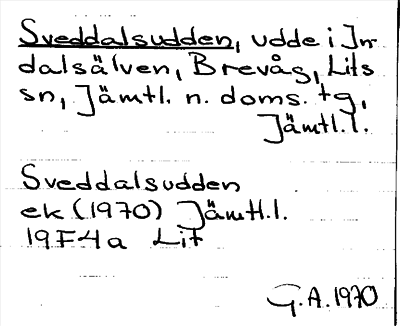 Sveddalsudden, udde i In
dalsälven, Brevåg, Lits
sn, Jämtl. n. doms. tg,
Jämtl.l.
Sveddalsudden
ek (1970) Jämtl.l.
19F4a Lit
G.A. 1970